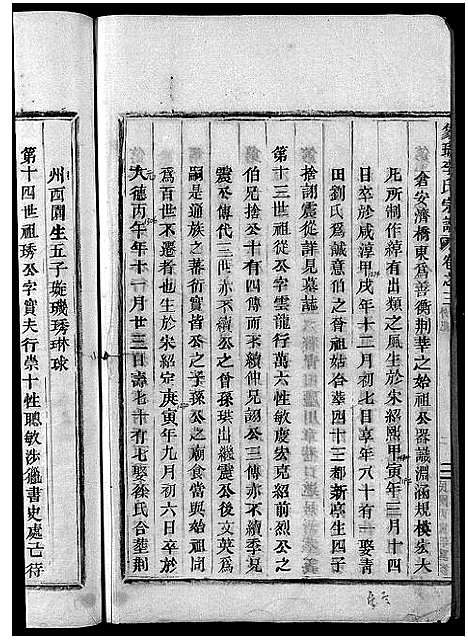 倉安濟橋東爲善衡荆華之始祖公器識淵涵規模宏大
凡所制作綽有出類之風生於宋紹熙甲寅年三月十四
日卒於咸淳甲戌年十二月初七日享年八十有一娶青
田劉氏爲誠意伯之曾祖姑合葬四十三都新亭生四子
捨詡震從詳見墓誌
第十三世祖從公字雲龍行萬六性敏慶宏克紹前烈公之
伯兄捨公十有一傳亦不續仲兄詡公三傳亦不續季兄
震公傳代三世亦不續公之曾孫琪出繼震公後文英爲
嗣是通族之蕃衍實皆公之子孫公之廟食當與始祖同
爲百世不遷者也生於宋紹定庚寅年九月初六日卒於
大德丙午年十一月廿三日壽七十有七娶徐氏合葬荆
州西圊生五子璇璣琇琳球
第十四世祖琇公字實夫行崇十性聰敏涉獵書史處亡待